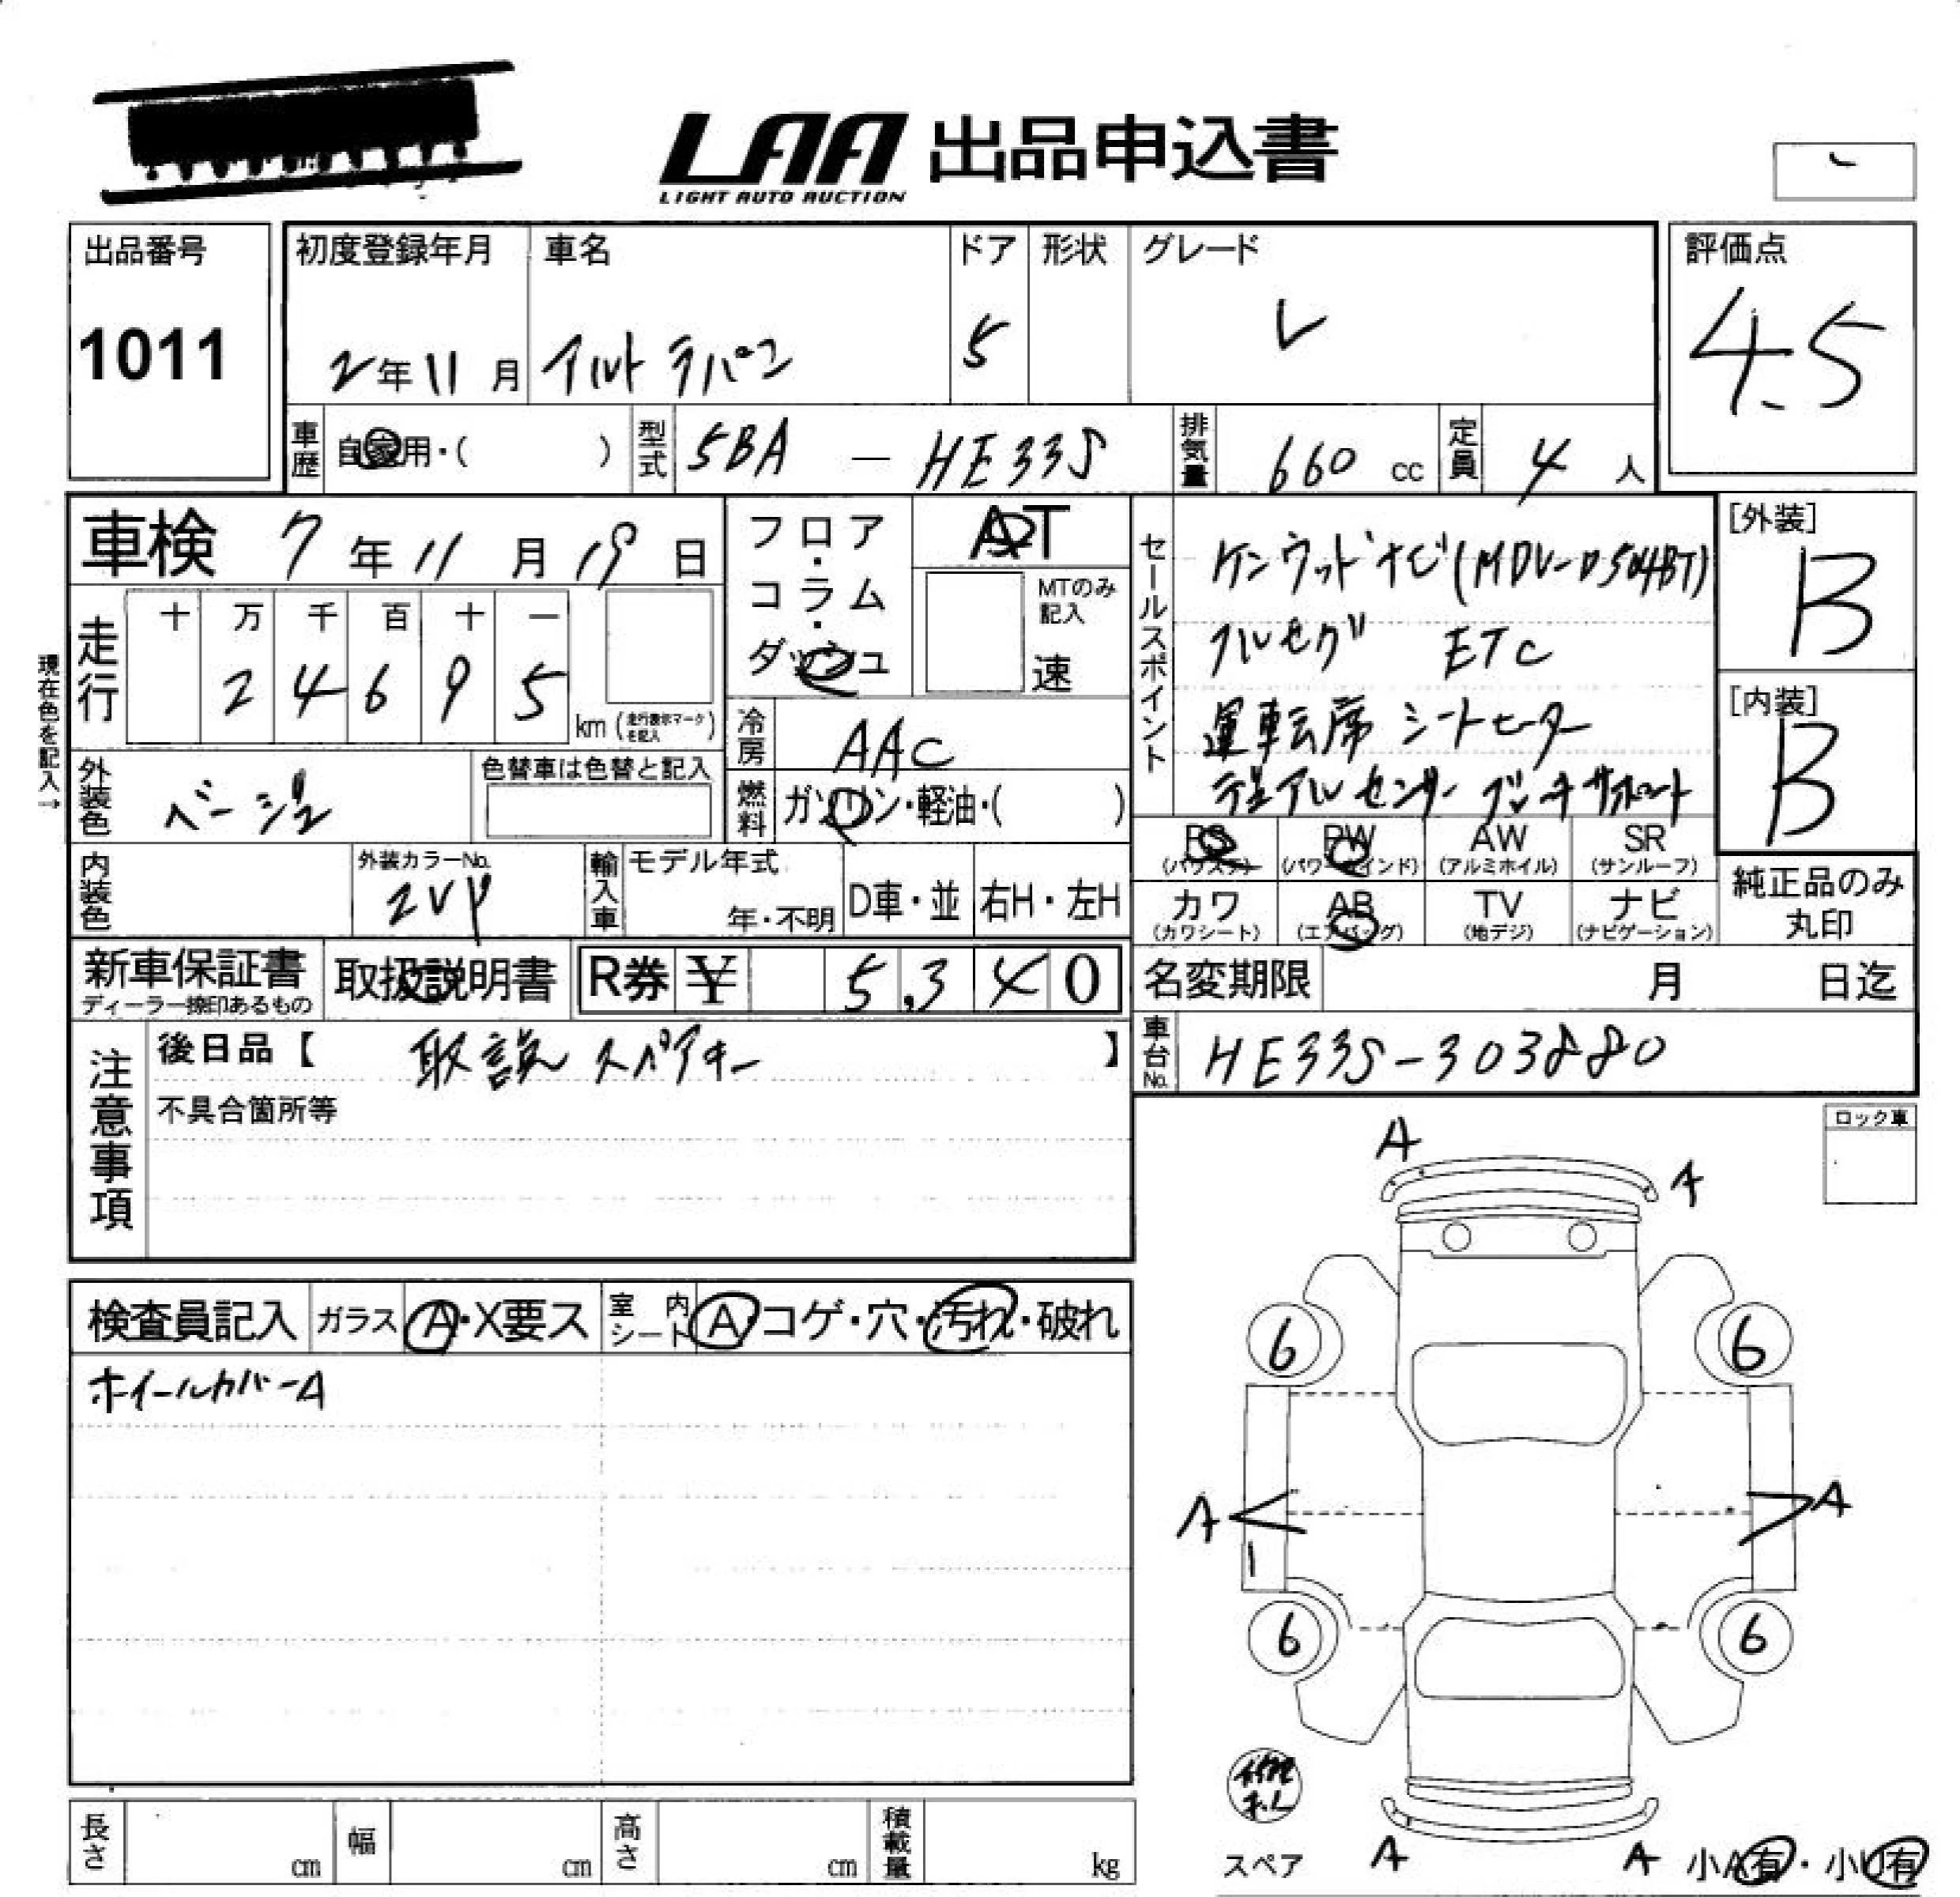 LAA 出品申込書
LIGHT AUTO AUCTION
出品番号
1011
初度登録年月
2年11月
車名
アルト ラパン
ドア
5
形状
グレード
L
評価点
4.5
車歴 自家用・( )
型式 5BA - HE33S
排気量 660 cc
定員 4 人
車検 7年11月19日
フロア・コラム・ダッシュ
AT
MTのみ記入
速
セールスポイント
ケンウッドナビ(MDV-D504BT)
フルセグ ETC
運転席 シートヒーター
デュアルセンサーブレーキサポート
[外装]
B
[内装]
B
現在色を記入→
走行
十 万 千 百 十 一
2 4 6 9 5
km(走行表示マークを記入)
冷房 AAC
燃料 ガソリン・軽油・( )
外装色 ベージュ
色替車は色替と記入
内装色
外装カラーNo.
2VP
輸入車 モデル年式
年・不明
D車・並
右H・左H
PS (パワステ)
PW (パワーウインド)
AW (アルミホイル)
SR (サンルーフ)
カワ (カワシート)
AB (エアバッグ)
TV (地デジ)
ナビ (ナビゲーション)
純正品のみ丸印
新車保証書
ディーラー捺印あるもの
取扱説明書
R券 ¥ 5,340
名変期限 月 日迄
車台No. HE33S-303880
注意事項
後日品【 取説 スペアキー 】
不具合箇所等
ロック車
検査員記入
ガラス A・X要ス
室内シート A・コゲ・穴・汚れ・破れ
ホイールカバーA
A
A
6
6
A
A
6
6
スペア
A
A
小A有・小U有
長さ cm
幅 cm
高さ cm
積載量 kg